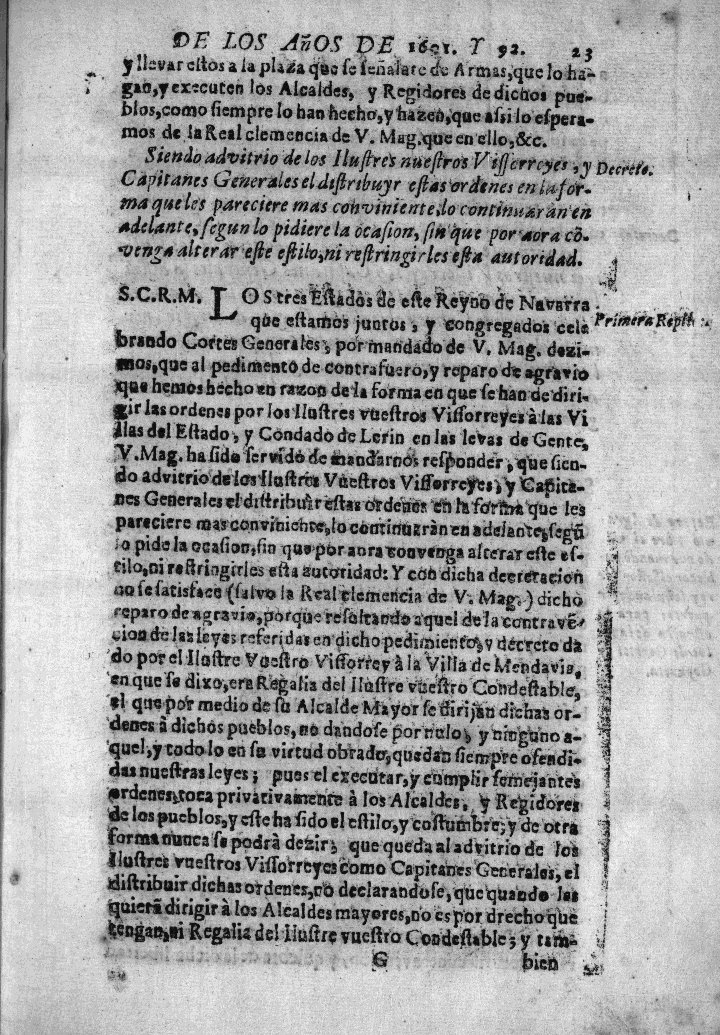 DE LOS AñOS DE 1691. Y 92. 23
y llevar estos a la plaza que se señalare de Armas, que lo ha-
gan, y executen los Alcaldes, y Regidores de dichos pue-
blos, como siempre lo han hecho, y hazen, que assi lo espera-
mos de la Real clemencia de V. Mag. que en ello, &c.
Siendo advitrio de los Ilustres nuestros Vissorreyes, y
Decreto.
Capitanes Generales el distribuyr estas ordenes en la for-
ma que les pareciere mas conviniente, lo continuaràn en
adelante, segun lo pidiere la ocasion, sin que por aora cõ-
venga alterar este estilo, ni restringirles esta autoridad.
S.C.R.M. LOS tres Estados de este Reyno de Navarra
que estamos juntos, y congregados cele
Primera Repli
brando Cortes Generales, por mandado de V. Mag. dezi-
mos, que al pedimento de contrafuero, y reparo de agravio
que hemos hecho en razon de la forma en que se han de diri-
gir las ordenes por los Ilustres vuestros Vissorreyes à las Vi
llas del Estado, y Condado de Lerin en las levas de Gente,
V. Mag. ha sido servido de mandarnos responder, que sien-
do advitrio de los Ilustres Vuestros Vissorreyes, y Capita-
nes Generales el distribuir estas ordenes en la forma que les
pareciere mas conviniente, lo continuaràn en adelante, segũ
lo pide la ocasion, sin que por aora convenga alterar este es-
tilo, ni restringirles esta autoridad: Y con dicha decretacion
no se satisface (salvo la Real clemencia de V. Mag.) dicho
reparo de agravio, porque resultando aquel de la contravẽ-
cion de las leyes referidas en dicho pedimiento, y decreto da
do por el Ilustre Vuestro Vissorrey à la Villa de Mendavia,
en que se dixo, era Regalia del Ilustre vuestro Condestable,
el que por medio de su Alcalde Mayor se dirijan dichas or-
denes à dichos pueblos, no dandose por nulo, y ninguno a-
quel, y todo lo en su virtud obrado, quedan siempre ofendi-
das nuestras leyes; pues el executar, y cumplir semejantes
ordenes, toca privativamente à los Alcaldes, y Regidores
de los pueblos, y este ha sido el estilo, y costumbre; y de otra
forma nunca se podrà dezir, que queda al advitrio de los
Ilustres vuestros Vissorreyes como Capitanes Generales, el
distribuir dichas ordenes, no declarandose, que quando las
quiera dirigir à los Alcaldes mayores, no es por drecho que
tengan, ni Regalia del Ilustre vuestro Condestable; y tam-
G bien